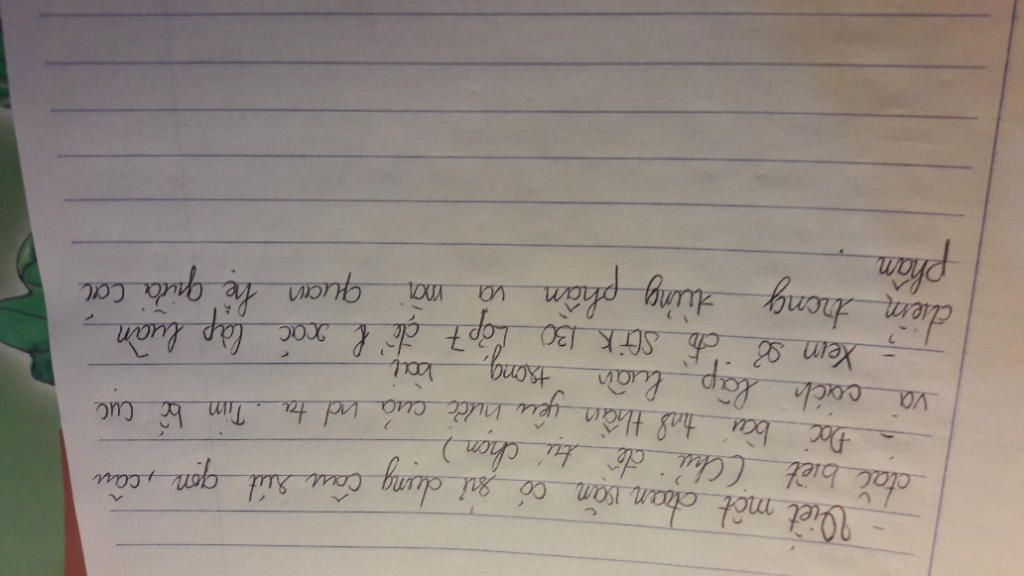 - Viết một đoạn văn có sử dụng câu rút gọn, câu
đặc biệt (chủ đề tự chọn)
- Đọc bài tinh thần yêu nước của nd ta. Tìm bố cục
và cách lập luận trong bài
- Xem sơ đồ SGK 130 Lớp 7 để xác lập luận
điểm trong từng phần và mối quan hệ giữa các
phần.